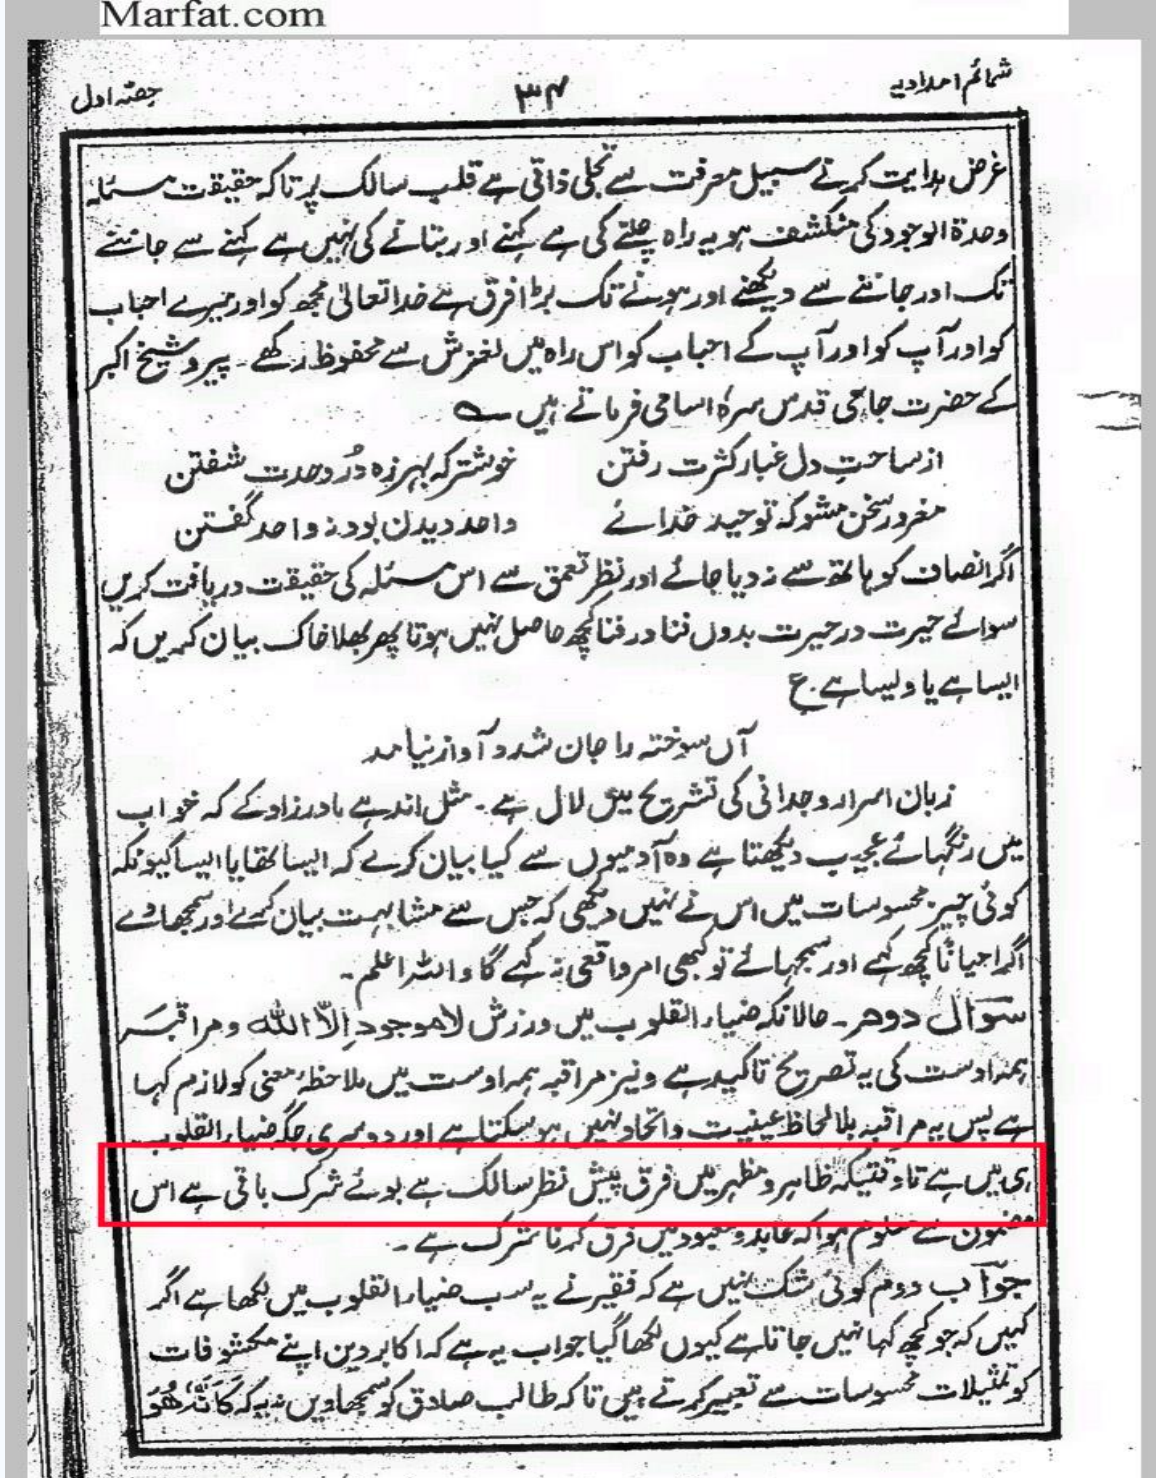 Marfat.com
شمائم امدادیہ
۳۴
حصّہ اول
غرض ہدایت کرنے سبیل معرفت سے تجلی ذاتی ہے قلب سالک پر تاکہ حقیقت مسئلہ
وحدۃ الوجود کی منکشف ہو یہ راہ چلنے کی ہے کہنے اور بتانے کی نہیں ہے کہنے سے جاننے
تک اور جاننے سے دیکھنے اور ہونے تک بڑا فرق ہے خدا تعالیٰ مجھ کو اور میرے احباب
کو اور آپ کو اور آپ کے احباب کو اس راہ میں لغزش سے محفوظ رکھے۔ پیرو شیخ اکبر
کے حضرت جامی قدس سرہ اسامی فرماتے ہیں ؎
از ساحتِ دل غبار کثرت رفتن خوشتر کہ بہرزہ دُر وحدت سفتن
مغرور سخن مشو کہ توحید خدائے واحد دیدن بود نہ واحد گفتن
اگر انصاف کو ہاتھ سے نہ دیا جائے اور نظر تعمق سے اس مسئلہ کی حقیقت دریافت کریں
سوائے حیرت در حیرت بدوں فنا در فنا کچھ حاصل نہیں ہوتا پھر بھلا خاک بیان کریں کہ
ایسا ہے یا ویسا ہے۔ ع
آں سوختہ را جان شد و آواز نیامد
زبان اسرار وجدانی کی تشریح میں لال ہے۔ مثل اندھے مادرزاد کے کہ خواب
میں رنگہائے عجیب دیکھتا ہے وہ آدمیوں سے کیا بیان کرے کہ ایسا تھا یا ایسا کیونکہ
کوئی چیز محسوسات میں اس نے نہیں دیکھی کہ جس سے مشابہت بیان کرے اور سمجھا دے
اگر احیاناً کچھ کہے اور سمجھائے تو کبھی امر واقعی نہ کہے گا واللہ اعلم۔
سوال دوم۔ حالانکہ ضیاء القلوب میں ورزش لا موجود اِلّا اللہ و مراقبہ
ہمہ اوست کی بہ تصریح تاکید ہے و نیز مراقبہ ہمہ اوست میں ملاحظہ معنی کو لازم کہا
ہے پس یہ مراقبہ بلا لحاظ عینیت و اتحاد نہیں ہو سکتا ہے اور دوسری جگہ ضیاء القلوب
ہی میں ہے تاوقتیکہ ظاہر و مظہر میں فرق پیش نظر سالک ہے بوئے شرک باقی ہے اس
مضمون سے معلوم ہوا کہ عابد و معبود میں فرق کرنا شرک ہے۔
جواب دوم کوئی شک نہیں ہے کہ فقیر نے یہ سب ضیاء القلوب میں لکھا ہے اگر
کہیں کہ جو کچھ کہا نہیں جاتا ہے کیوں لکھا گیا جواب یہ ہے کہ اکابر دین اپنے مکشوفات
کو تمثیلات محسوسات سے تعبیر کرتے ہیں تاکہ طالب صادق کو سمجھا دیں نہ یہ کہ کَاَنَّہٗ ھُوَ